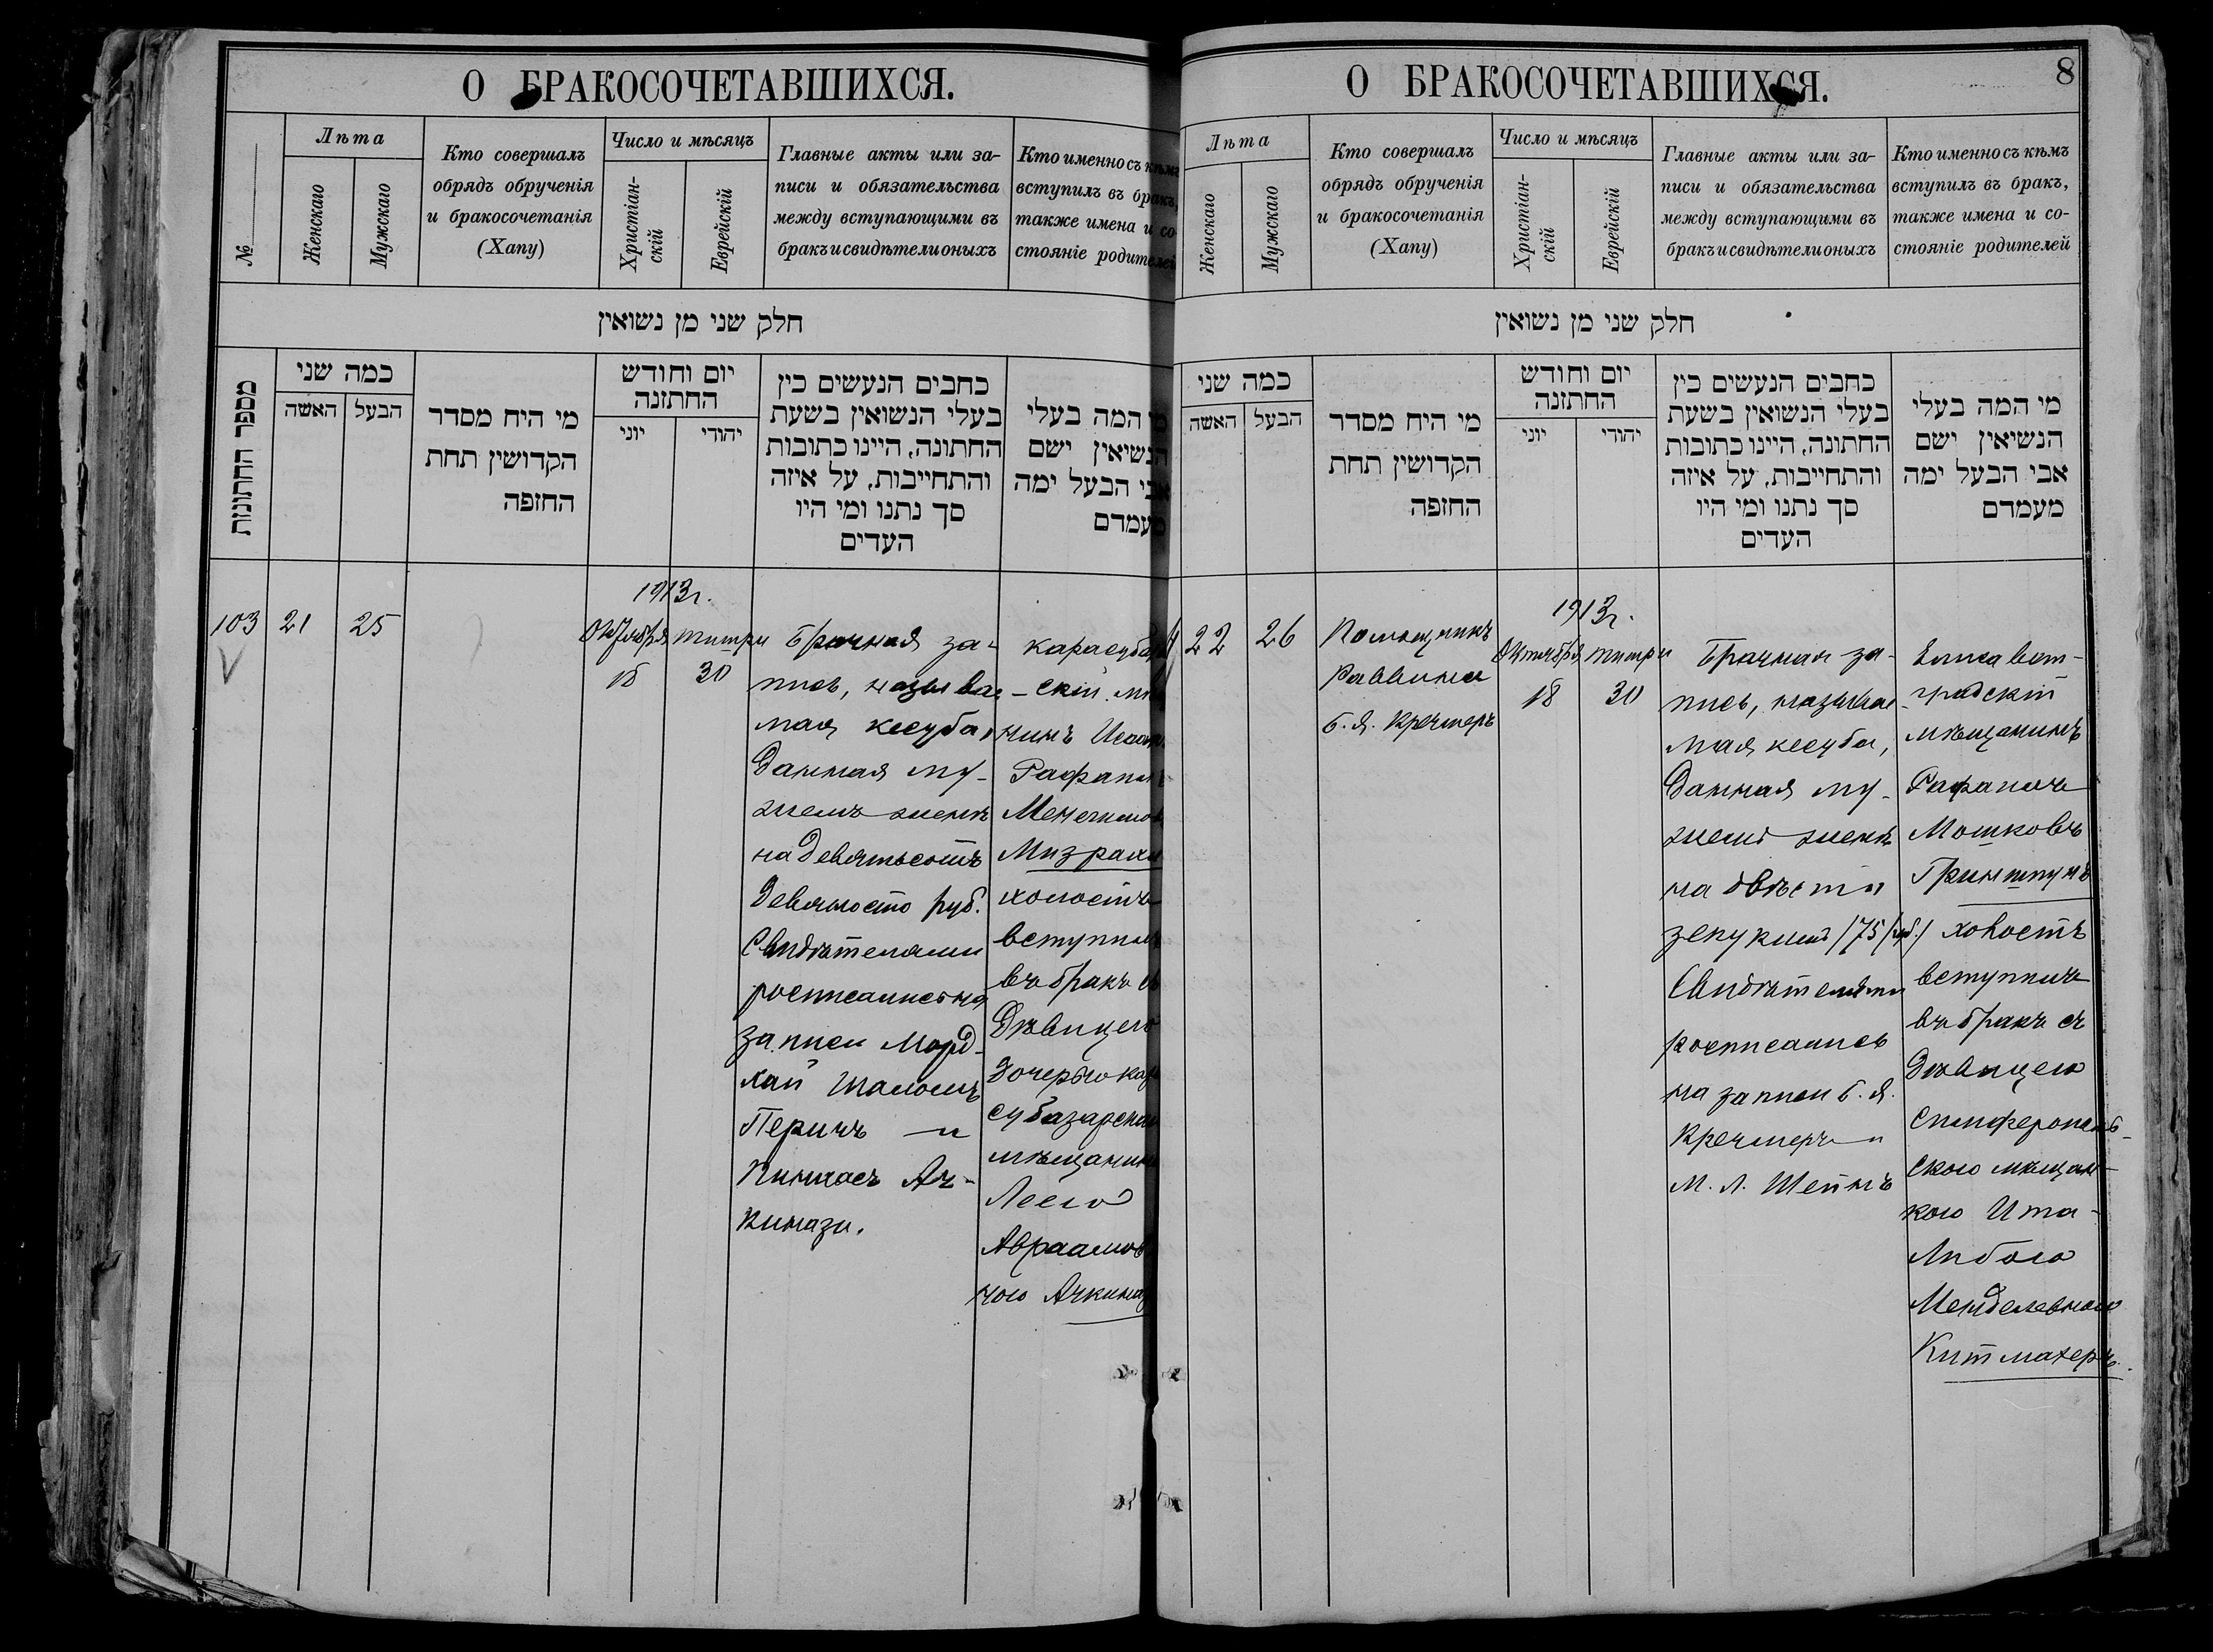 О БРАКОСОЧЕТАВШИХСЯ.
№
Лѣта
Женскаго
Мужскаго
Кто совершалъ
обрядъ обрученія
и бракосочетанія
(Хапу)
Число и мѣсяцъ
Христіан-
скій
Еврейскій
Главные акты или за-
писи и обязательства
между вступающими въ
бракъ и свидѣтели оныхъ
Кто именно съ кѣмъ
вступилъ въ бракъ,
также имена и со-
стояніе родителей
חלק שני מן נשואין
מספר החתונות
כמה שני
האשה
הבעל
מי היח מסדר
הקדושין תחת
החופה
יום וחודש
החתונה
יוני
יהודי
כתבים הנעשים בין
בעלי הנשואין בשעת
החתונה, היינו כתובות
והתחייבות, על איזה
סך נתנו ומי היו
העדים
מי המה בעלי
הנשיאין ישם
אבי הבעל ימה
מעמדם
103
21
25
1913г.
Октября
18
тишри
30
Брачная за-
пись, называе-
мая кесуба,
данная му-
жемъ женѣ
на девятьсотъ
девяносто руб.
Свидѣтелями
росписались на
записи Морд-
хай Шаломъ
Перичъ и
Пинхасъ Ач-
кинази.
карасубазар
-скій мѣща
нинъ Исаакъ
Рафаилъ
Менечимов
Мизрахи
холостъ
вступилъ
въ бракъ съ
дѣвицею
дочерью кара
субазарскаго
мѣщанина
Леею
Авраамов
ною Ачкинази
О БРАКОСОЧЕТАВШИХСЯ.
8
Лѣта
Женскаго
Мужскаго
Кто совершалъ
обрядъ обрученія
и бракосочетанія
(Хапу)
Число и мѣсяцъ
Христіан-
скій
Еврейскій
Главные акты или за-
писи и обязательства
между вступающими въ
бракъ и свидѣтели оныхъ
Кто именно съ кѣмъ
вступилъ въ бракъ,
также имена и со-
стояніе родителей
חלק שני מן נשואין
כמה שני
האשה
הבעל
מי היח מסדר
הקדושין תחת
החופה
יום וחודש
החתונה
יוני
יהודי
כתבים הנעשים בין
בעלי הנשואין בשעת
החתונה, היינו כתובות
והתחייבות, על איזה
סך נתנו ומי היו
העדים
מי המה בעלי
הנשיאין ישם
אבי הבעל ימה
מעמדם
22
26
Помощникъ
Раввина
Б. Я. Кречмеръ
1913г.
Октября
18
тишри
30
Брачная за-
пись, называе
мая кесуба,
данная му-
жемъ женѣ
на двѣсти
зекукимъ /75 руб./
Свидѣтелями
росписались
на записи Б. Я.
Кречмеръ и
М. Л. Шейнъ
Елисавет-
градскій
мѣщанинъ
Рафаилъ
Мошковъ
Гриншпунъ
холостъ
вступилъ
въ бракъ съ
дѣвицею
Симферополь-
скою мѣщан-
кою Ита-
Либою
Менделевною
Китмахеръ.